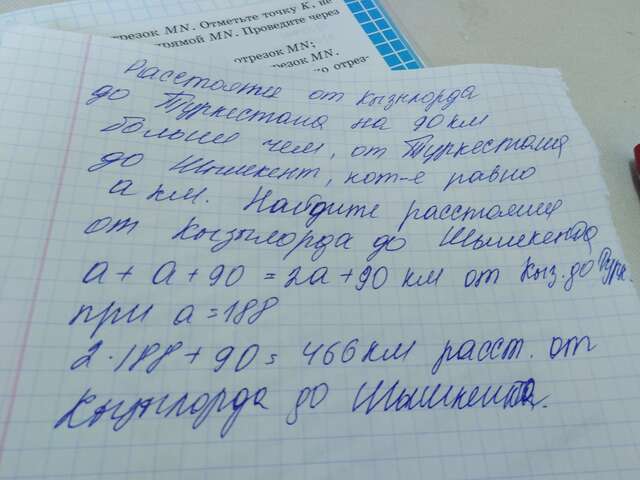 трезок MN. Отметьте точку K, не
прямой MN. Проведите через
отрезок MN;
резок MN.
отрез-
Расстояние от Кызылорда
до Туркестана на 90 км
больше чем, от Туркестана
до Шымкент, кот-е равно
а км. Найдите расстояние
от Кызылорда до Шымкента
а + а + 90 = 2а + 90 км от Кыз. до Турк.
при а = 188
2·188 + 90 = 466 км расст. от
Кызылорда до Шымкента.